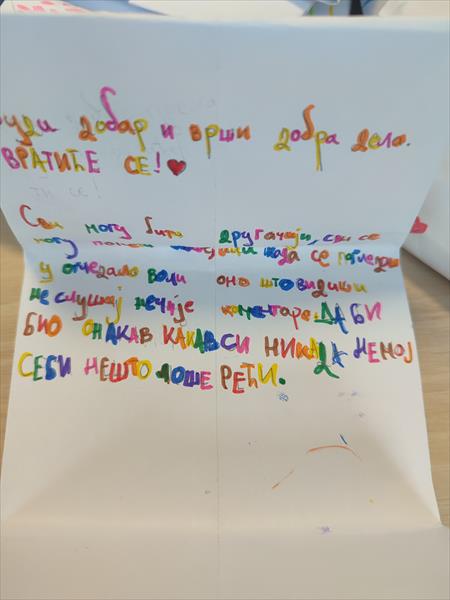 уди добар и врши добра дела.
ВРАТИЋЕ СЕ!
ти се!
Сви могу бити другачији, сви се
могу када се погледаш
у огледало воли оно што видиш
не слушај нечије коментаре. ДА БИ
БИО ОНАКАВ КАКАВ СИ НИКАДА НЕМОЈ
СЕБИ НЕШТО ЛОШЕ РЕЋИ.